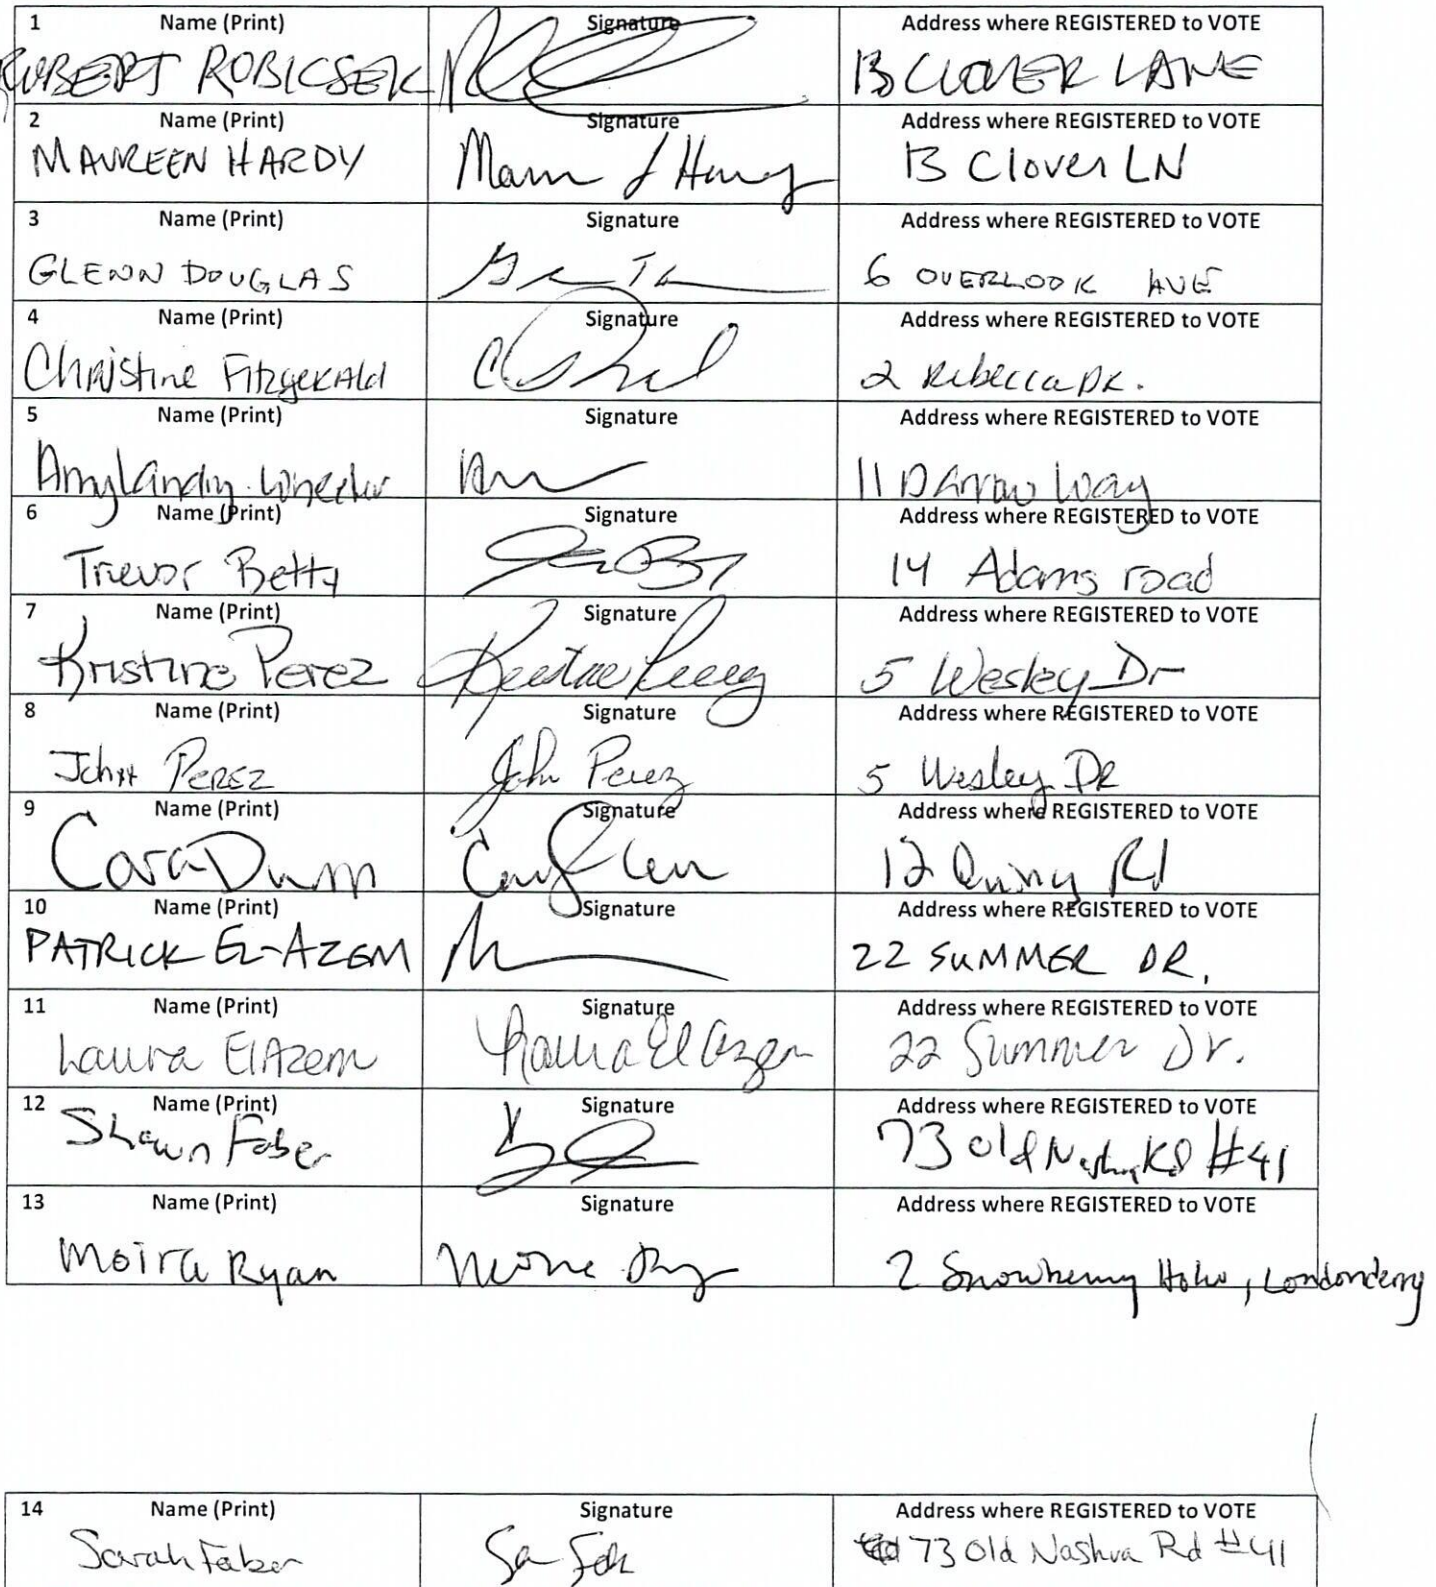 1 Name (Print) Signature Address where REGISTERED to VOTE
ROBERT ROBICSEK 13 CLOVER LANE
2 Name (Print) Signature Address where REGISTERED to VOTE
MAUREEN HARDY 13 Clover LN
3 Name (Print) Signature Address where REGISTERED to VOTE
GLENN DOUGLAS 6 OVERLOOK AVE
4 Name (Print) Signature Address where REGISTERED to VOTE
Christine Fitzgerald 2 Rebecca DR.
5 Name (Print) Signature Address where REGISTERED to VOTE
Amy Landry-Wheeler 11 Darrow Way
6 Name (Print) Signature Address where REGISTERED to VOTE
Trevor Betty 14 Adams road
7 Name (Print) Signature Address where REGISTERED to VOTE
Kristine Perez Kristine Perez 5 Wesley Dr
8 Name (Print) Signature Address where REGISTERED to VOTE
John PEREZ John Perez 5 Wesley DR
9 Name (Print) Signature Address where REGISTERED to VOTE
Cara Dunn 12 Rd
10 Name (Print) Signature Address where REGISTERED to VOTE
PATRICK EL-AZEM 22 SUMMER DR.
11 Name (Print) Signature Address where REGISTERED to VOTE
Laura ElAzem Laura El Azem 22 Summer Dr.
12 Name (Print) Signature Address where REGISTERED to VOTE
Shawn Faber 73 old Nashua Rd #41
13 Name (Print) Signature Address where REGISTERED to VOTE
Moira Ryan 2 Snowberry Hollow, Londonderry
14 Name (Print) Signature Address where REGISTERED to VOTE
Sarah Faber 73 Old Nashua Rd #41